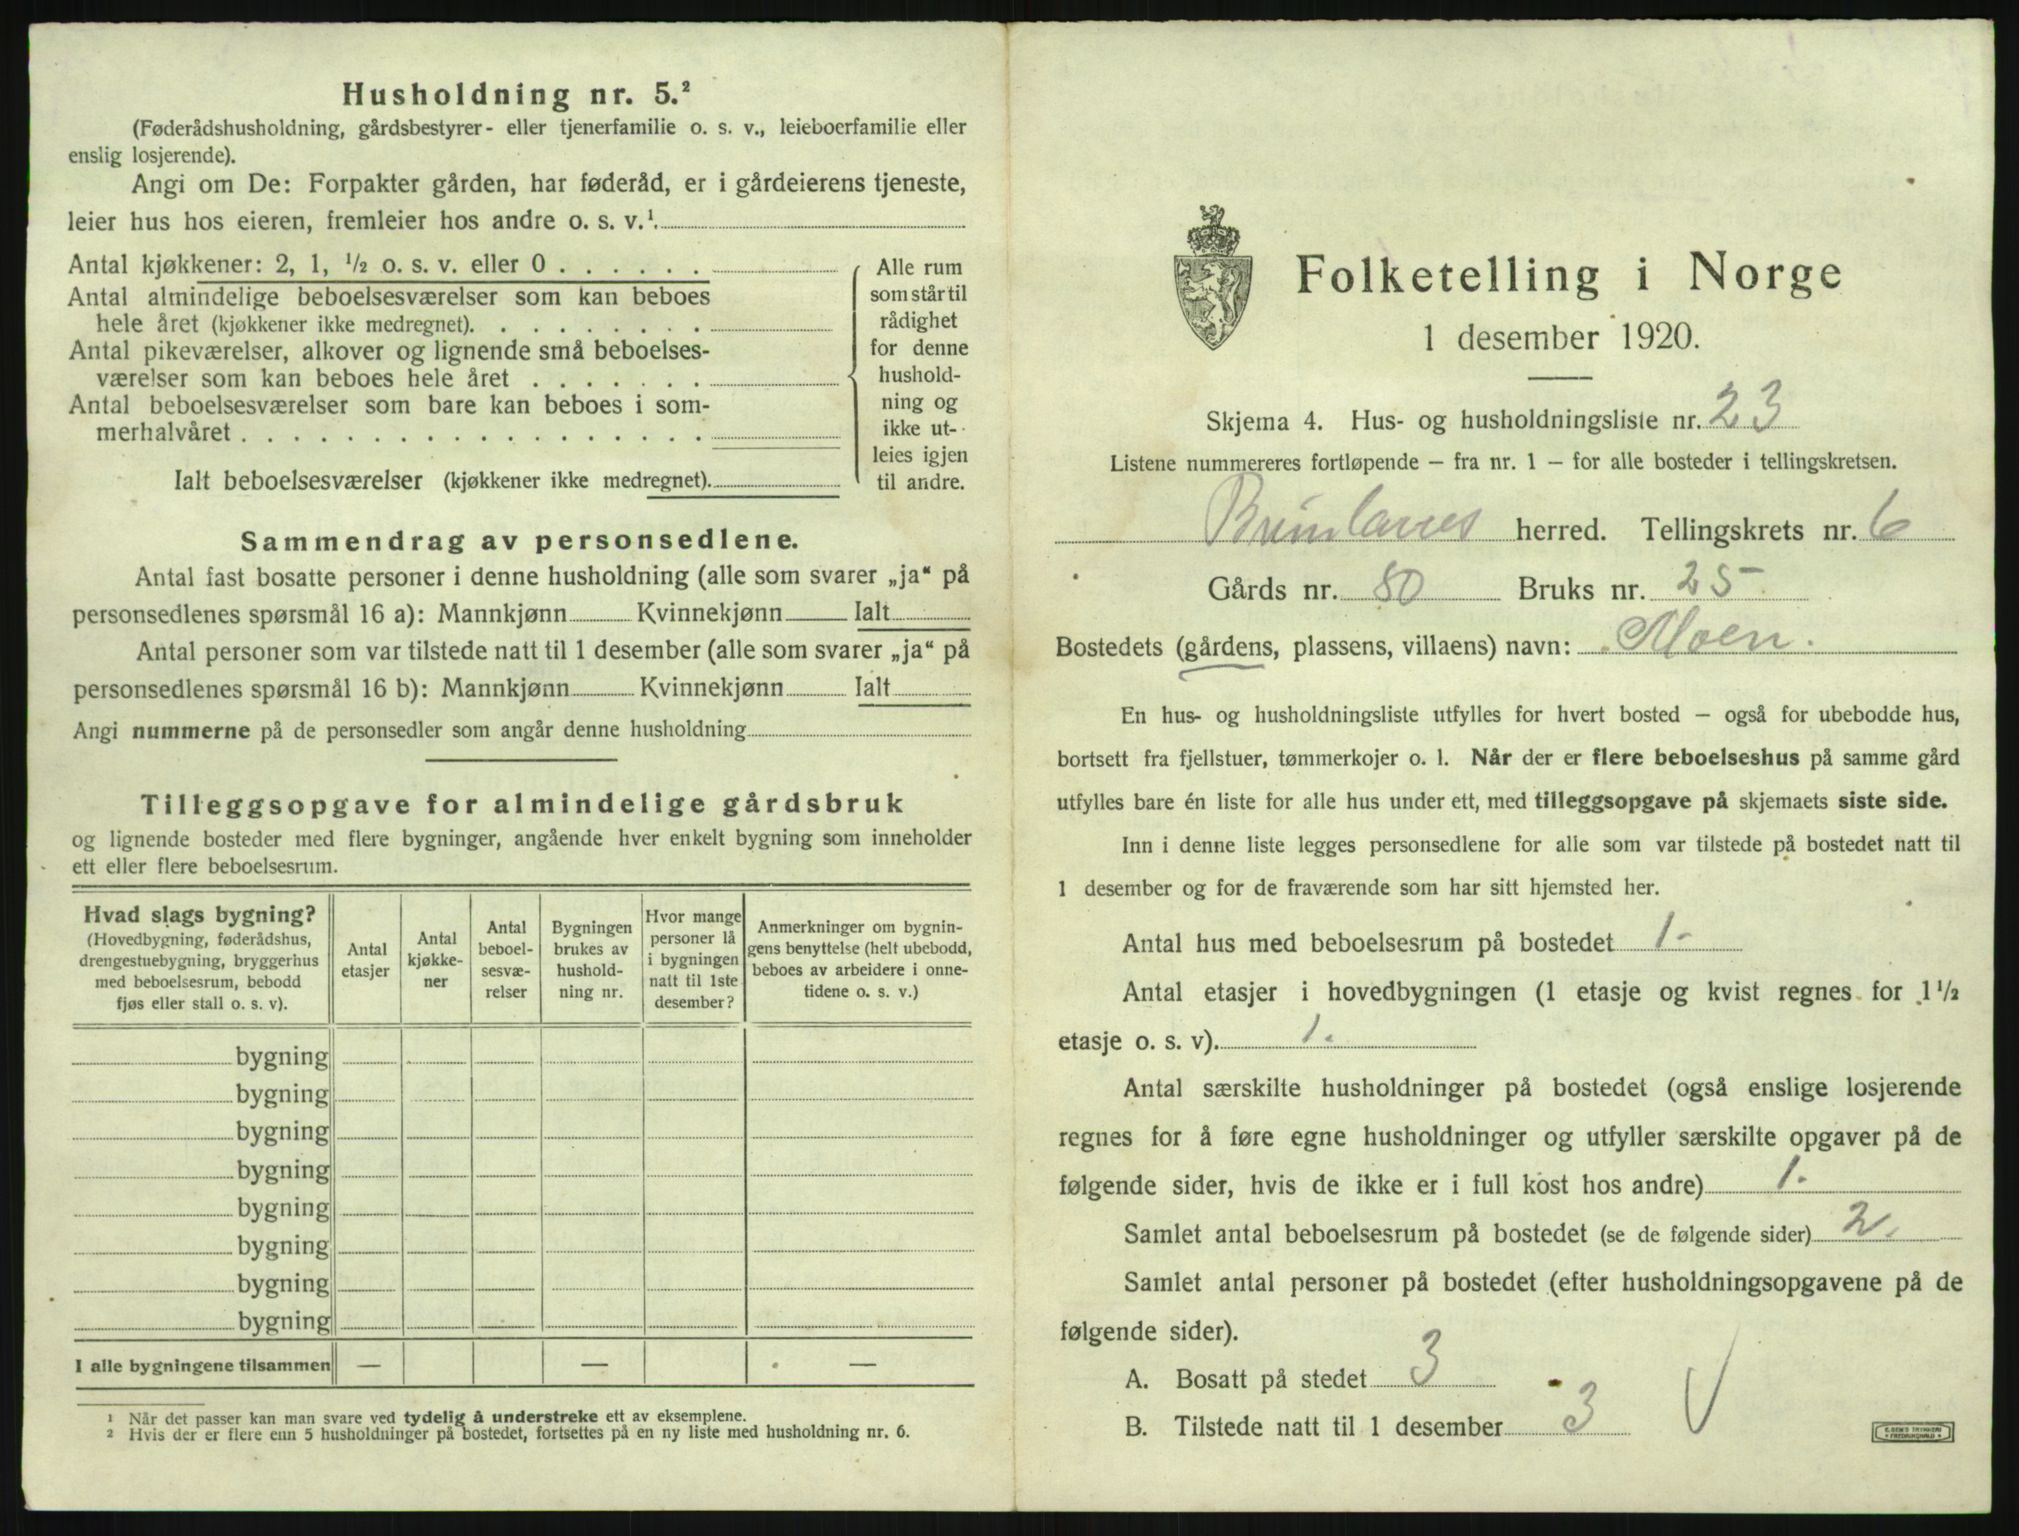 Husholdning nr. 5.²
(Føderådshusholdning, gårdsbestyrer- eller tjenerfamilie o. s. v., leieboerfamilie eller
enslig losjerende).
Angi om De: Forpakter gården, har føderåd, er i gårdeierens tjeneste,
leier hus hos eieren, fremleier hos andre o. s. v.¹
Antal kjøkkener: 2, 1, ½ o. s. v. eller 0
Antal almindelige beboelsesværelser som kan beboes
hele året (kjøkkener ikke medregnet).
Antal pikeværelser, alkover og lignende små beboelses-
værelser som kan beboes hele året
Antal beboelsesværelser som bare kan beboes i som-
merhalvåret
Ialt beboelsesværelser (kjøkkener ikke medregnet).
Alle rum
som står til
rådighet
for denne
hushold-
ning og
ikke ut-
leies igjen
til andre.
Sammendrag av personsedlene.
Antal fast bosatte personer i denne husholdning (alle som svarer „ja“ på
personsedlenes spørsmål 16 a): Mannkjønn Kvinnekjønn Ialt
Antal personer som var tilstede natt til 1 desember (alle som svarer „ja“ på
personsedlenes spørsmål 16 b): Mannkjønn Kvinnekjønn Ialt
Angi nummerne på de personsedler som angår denne husholdning
Tilleggsopgave for almindelige gårdsbruk
og lignende bosteder med flere bygninger, angående hver enkelt bygning som inneholder
ett eller flere beboelsesrum.
Hvad slags bygning?
(Hovedbygning, føderådshus,
drengestuebygning, bryggerhus
med beboelsesrum, bebodd
fjøs eller stall o. s. v).
Antal
etasjer
Antal
kjøkke-
ner
Antal
beboel-
sesvæ-
relser
Bygningen
brukes av
hushold-
ning nr.
Hvor mange
personer lå
i bygningen
natt til 1ste
desember?
Anmerkninger om bygnin-
gens benyttelse (helt ubebodd,
beboes av arbeidere i onne-
tidene o. s. v.)
bygning
bygning
bygning
bygning
bygning
bygning
bygning
bygning
I alle bygningene tilsammen — — —
¹ Når det passer kan man svare ved tydelig å understreke ett av eksemplene.
² Hvis der er flere enn 5 husholdninger på bostedet, fortsettes på en ny liste med husholdning nr. 6.
Folketelling i Norge
1 desember 1920.
Skjema 4. Hus- og husholdningsliste nr. 23
Listene nummereres fortløpende – fra nr. 1 – for alle bosteder i tellingskretsen.
Brunlanes herred. Tellingskrets nr. 6
Gårds nr. 80 Bruks nr. 25
Bostedets (gårdens, plassens, villaens) navn: Moen.
En hus- og husholdningsliste utfylles for hvert bosted – også for ubebodde hus,
bortsett fra fjellstuer, tømmerkojer o. l. Når der er flere beboelseshus på samme gård
utfylles bare én liste for alle hus under ett, med tilleggsopgave på skjemaets siste side.
Inn i denne liste legges personsedlene for alle som var tilstede på bostedet natt til
1 desember og for de fraværende som har sitt hjemsted her.
Antal hus med beboelsesrum på bostedet 1-
Antal etasjer i hovedbygningen (1 etasje og kvist regnes for 1½
etasje o. s. v). 1.
Antal særskilte husholdninger på bostedet (også enslige losjerende
regnes for å føre egne husholdninger og utfyller særskilte opgaver på de
følgende sider, hvis de ikke er i full kost hos andre) 1.
Samlet antal beboelsesrum på bostedet (se de følgende sider) 2.
Samlet antal personer på bostedet (efter husholdningsopgavene på de
følgende sider).
A. Bosatt på stedet 3
B. Tilstede natt til 1 desember 3